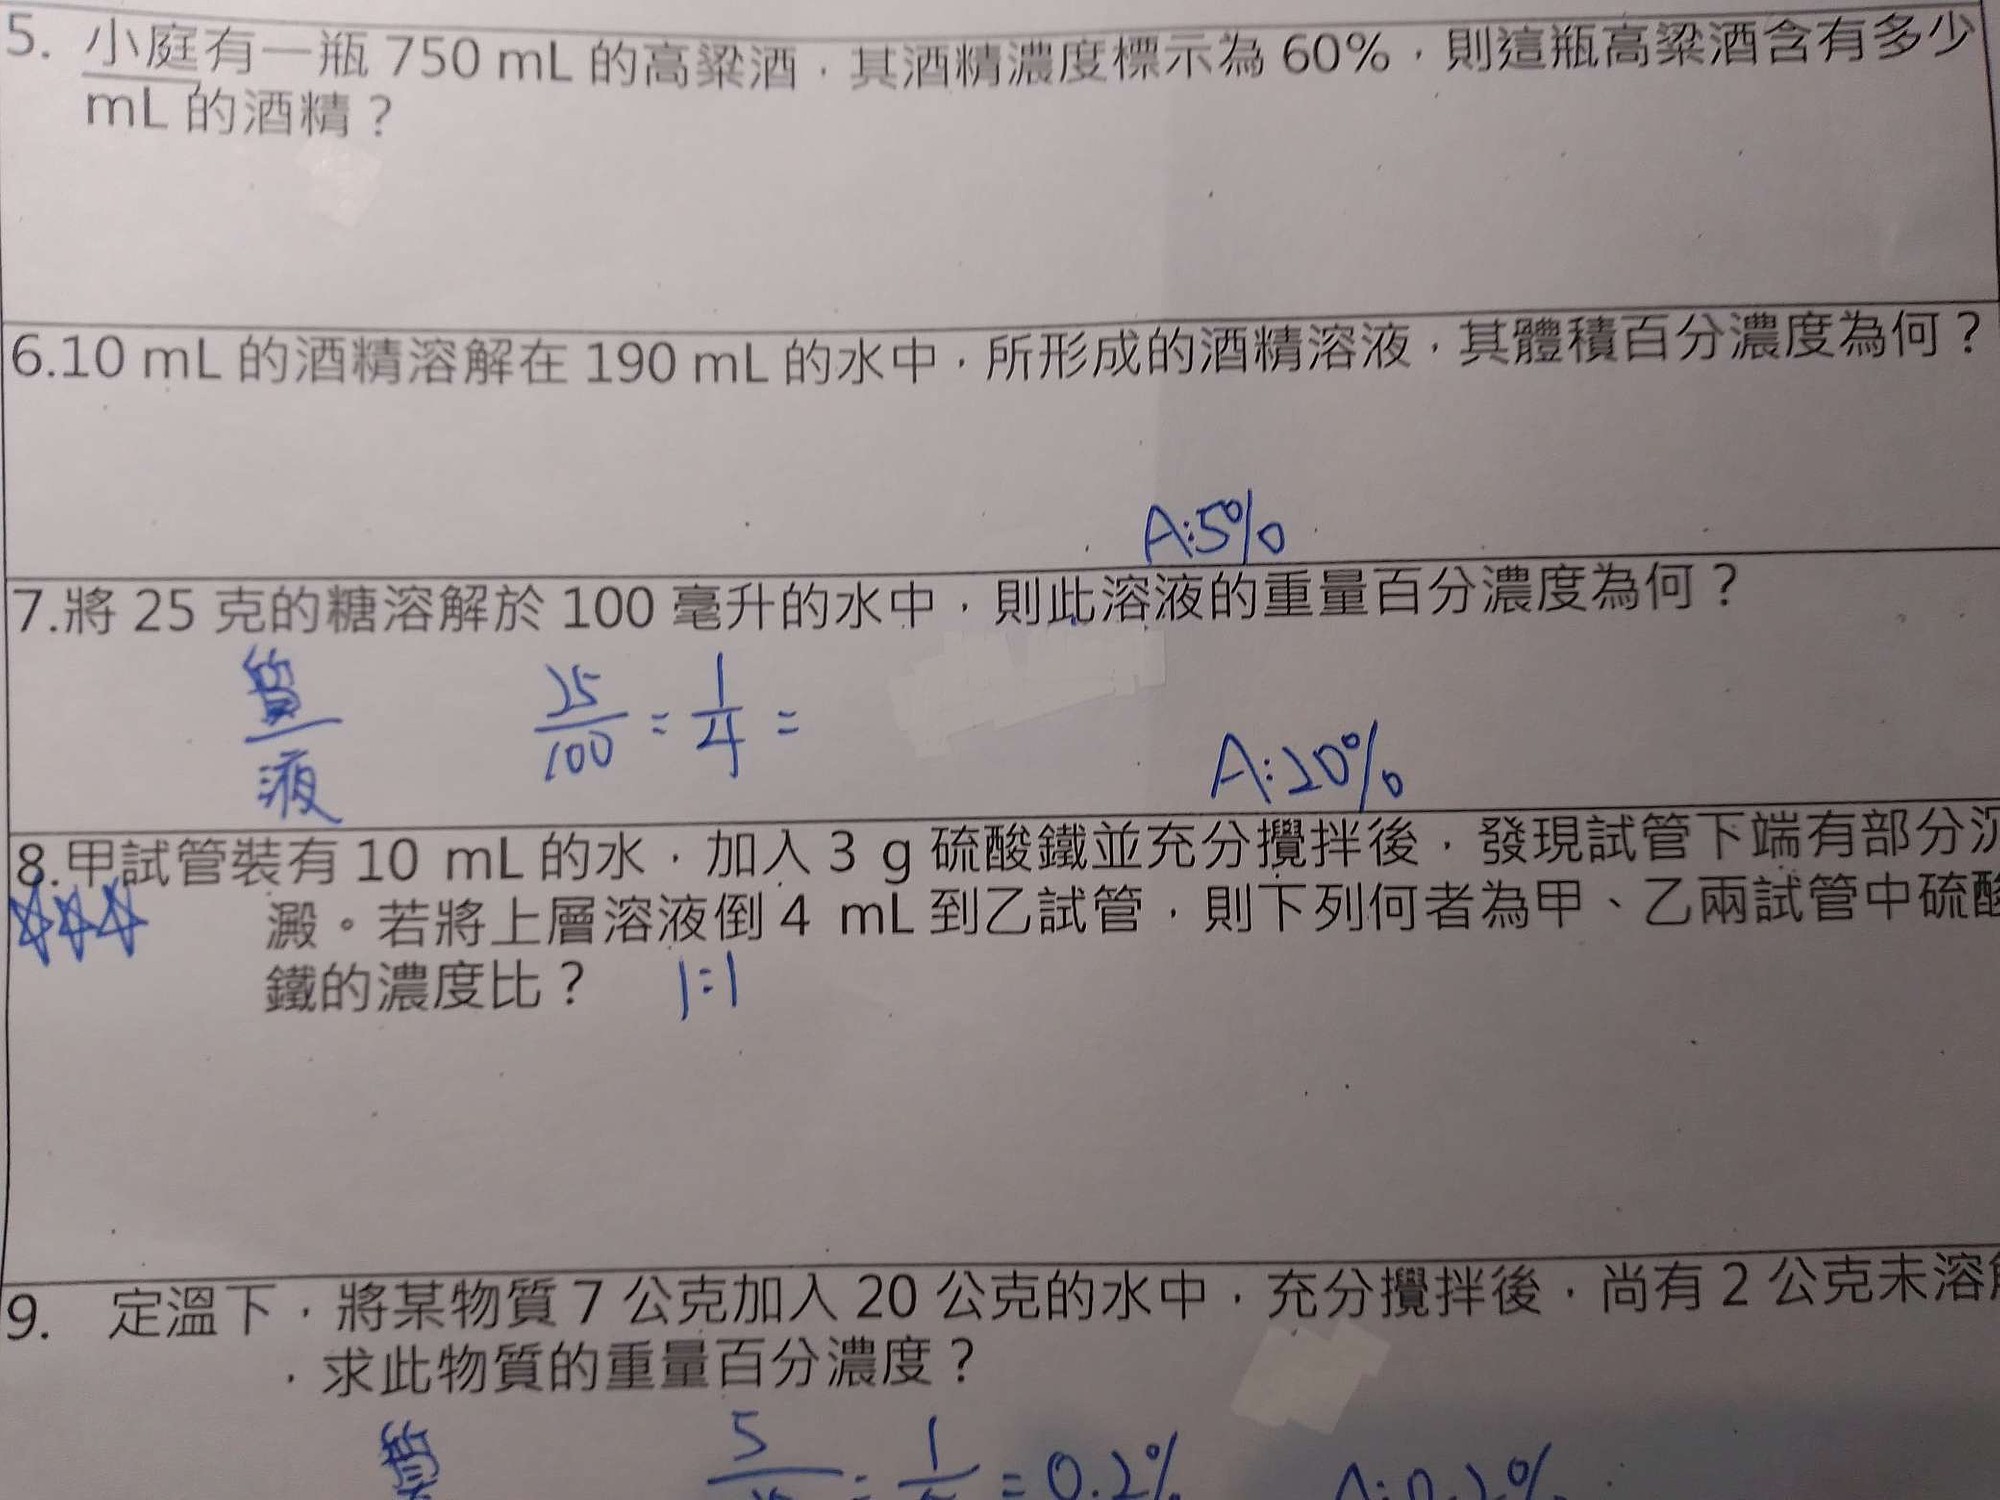 5. 小庭有一瓶 750 mL 的高粱酒，其酒精濃度標示為 60%，則這瓶高粱酒含有多少
mL 的酒精？
6.10 mL 的酒精溶解在 190 mL 的水中，所形成的酒精溶液，其體積百分濃度為何？
A:5%
7.將 25 克的糖溶解於 100 毫升的水中，則此溶液的重量百分濃度為何？
質/液 25/100 = 1/4 =
A:20%
8.甲試管裝有 10 mL 的水，加入 3 g 硫酸鐵並充分攪拌後，發現試管下端有部分沉
澱。若將上層溶液倒 4 mL 到乙試管，則下列何者為甲、乙兩試管中硫酸
鐵的濃度比？ 1:1
9. 定溫下，將某物質 7 公克加入 20 公克的水中，充分攪拌後，尚有 2 公克未溶解
，求此物質的重量百分濃度？
質 5 = 1 = 0.2% A:0.2%